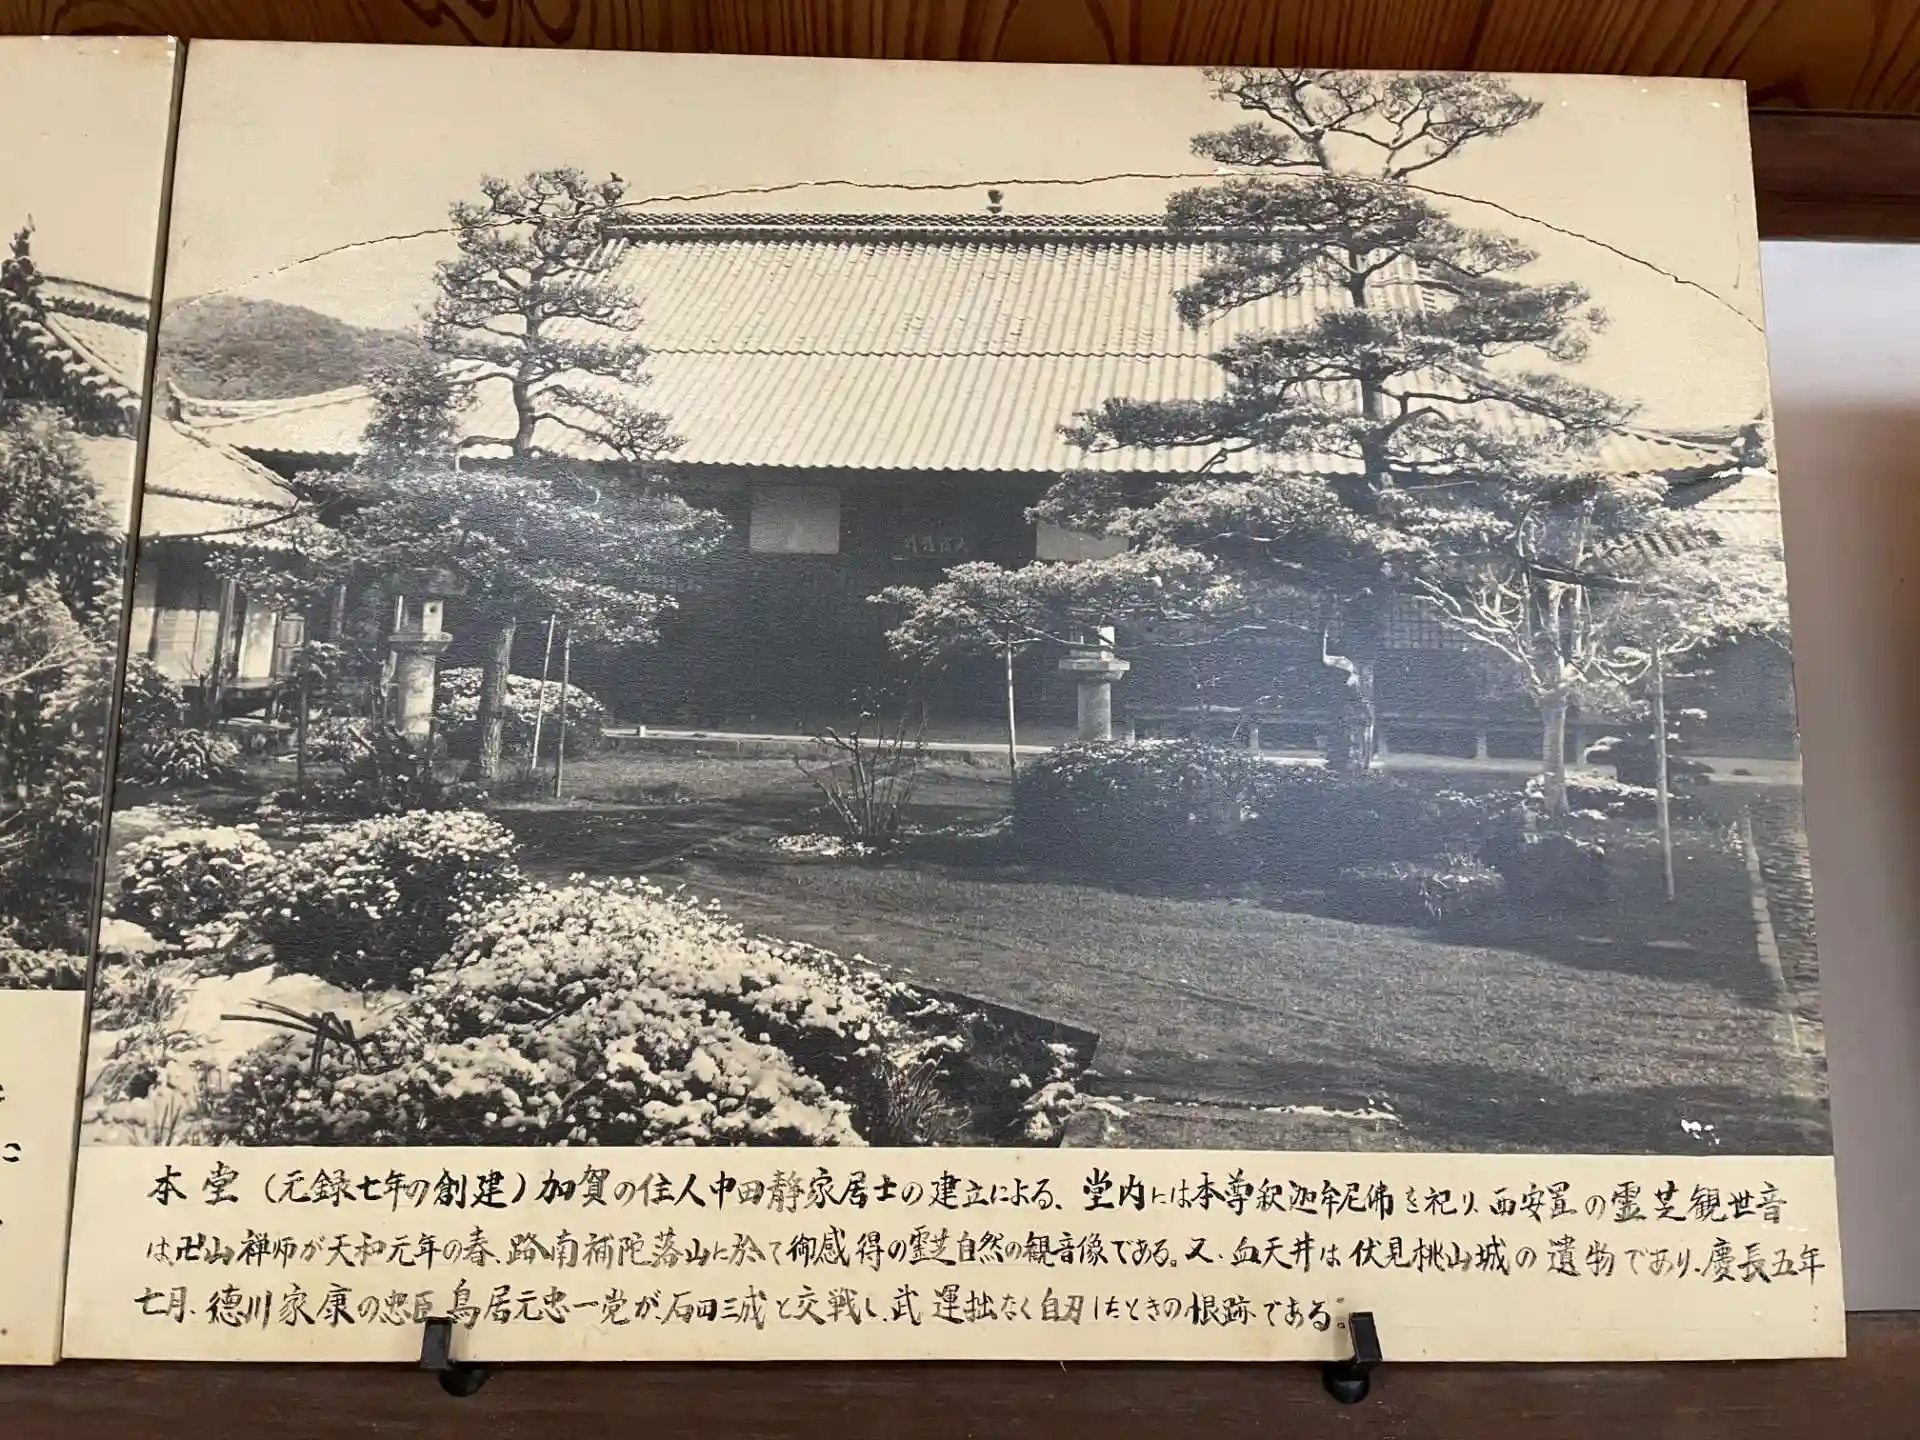 本堂（元録七年の創建）加賀の住人中田静家居士の建立による、堂内には本尊釈迦牟尼佛を祀り、西安置の霊芝観世音
は卍山禅师が天和元年の春、路南補陀落山に於て御感得の霊芝自然の観音像である。又、血天井は伏見桃山城の遺物であり、慶長五年
七月、徳川家康の忠臣鳥居元忠一党が、石田三成と交戦し、武運拙なく自刃したときの恨跡である。
に